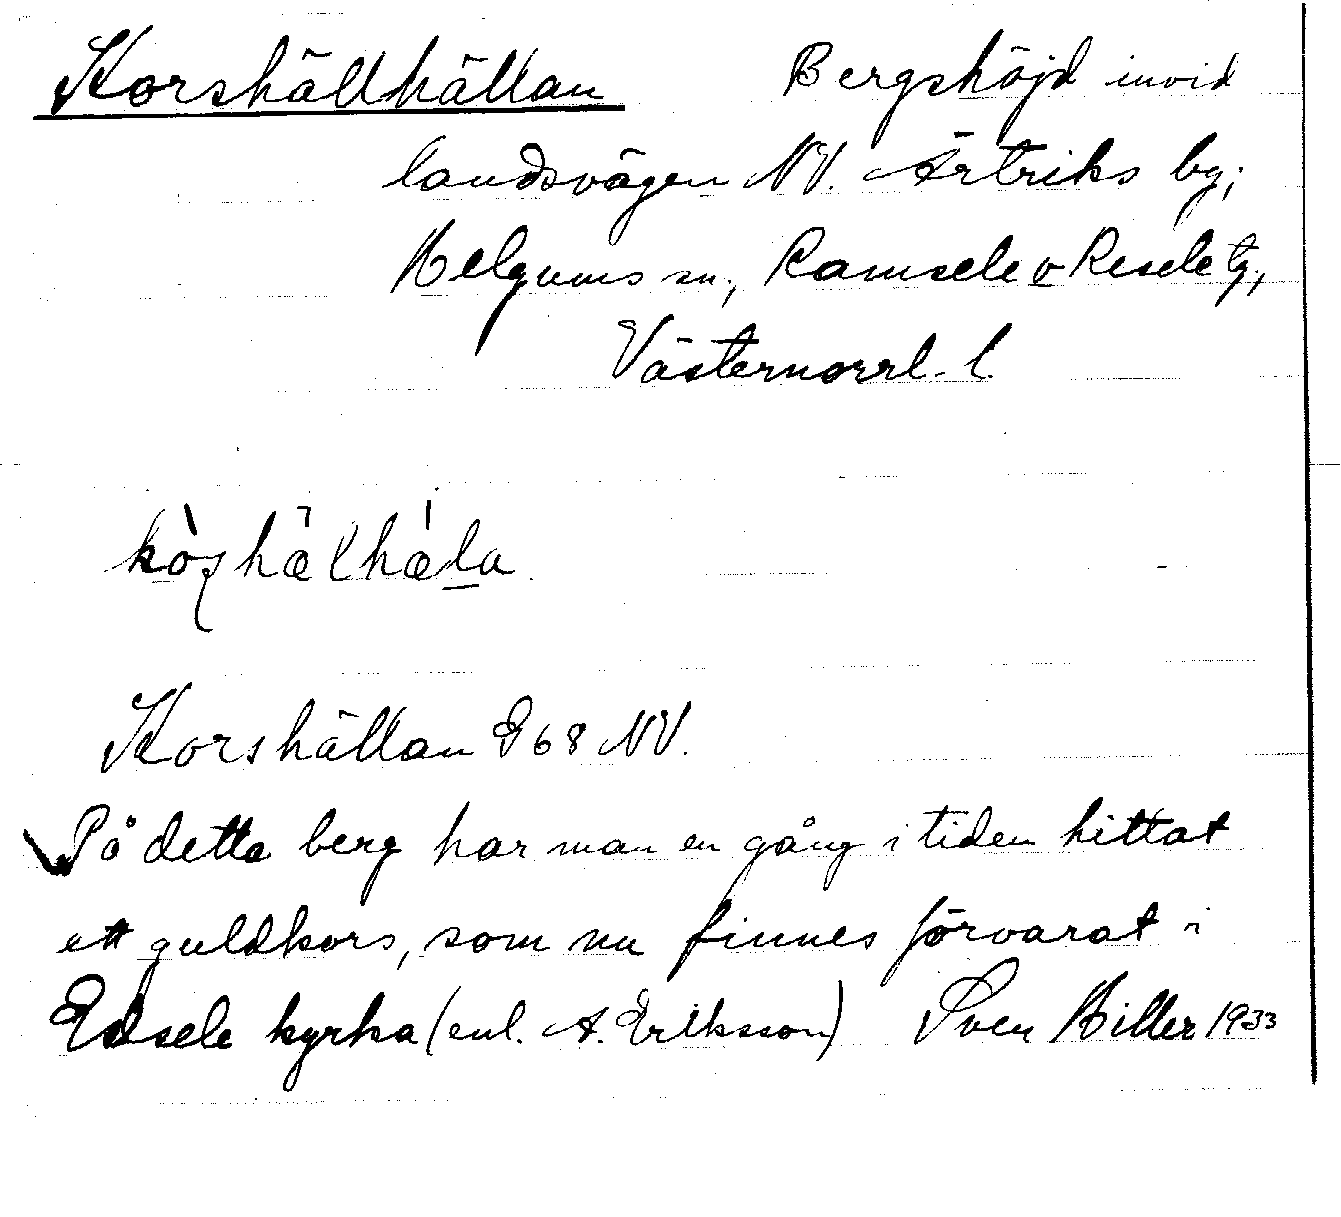 Korshällhällan Bergshöjd invid
landsvägen NV. Ärtriks by;
Helgums sn, Ramsele o Resele tg,
Västernorrl. l.
Korshällan E68 NV.
På detta berg har man en gång i tiden hittat
ett guldkors, som nu finnes förvarat i
Edsele kyrka (enl. A. Eriksson) Sven Hiller 1933